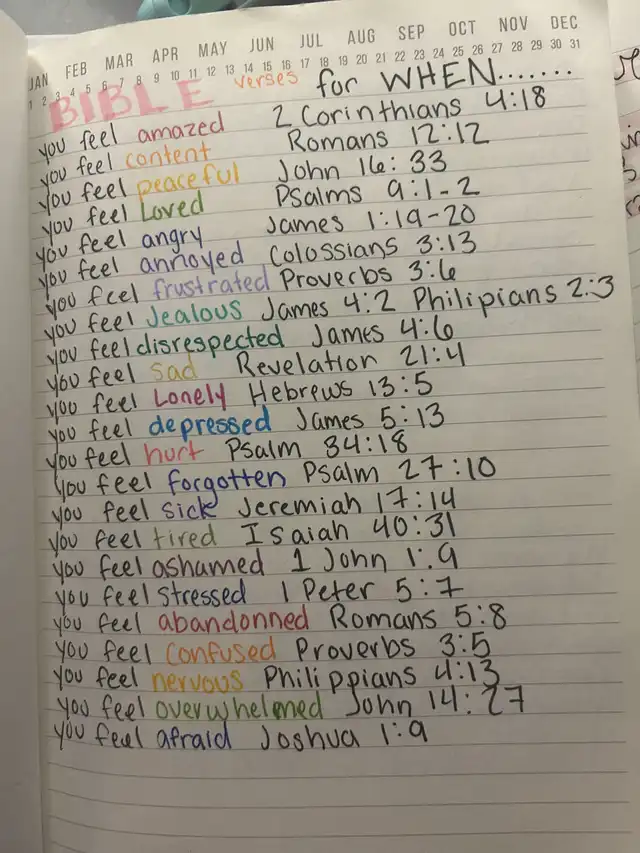 JAN FEB MAR APR MAY JUN JUL AUG SEP OCT NOV DEC
1 2 3 4 5 6 7 8 9 10 11 12 13 14 15 16 17 18 19 20 21 22 23 24 25 26 27 28 29 30 31
BIBLE verses for WHEN.......
you feel amazed 2 Corinthians 4:18
you feel content Romans 12:12
you feel peaceful John 16:33
you feel Loved Psalms 9:1-2
you feel angry James 1:19-20
you feel annoyed Colossians 3:13
you feel frustrated Proverbs 3:6
you feel Jealous James 4:2 Philipians 2:3
you feel disrespected James 4:6
you feel sad Revelation 21:4
you feel Lonely Hebrews 13:5
you feel depressed James 5:13
you feel hurt Psalm 34:18
you feel forgotten Psalm 27:10
you feel sick Jeremiah 17:14
you feel tired Isaiah 40:31
you feel ashamed 1 John 1:9
you feel stressed 1 Peter 5:7
you feel abandonned Romans 5:8
you feel confused Proverbs 3:5
you feel nervous Philippians 4:13
you feel overwhelmed John 14:27
you feel afraid Joshua 1:9